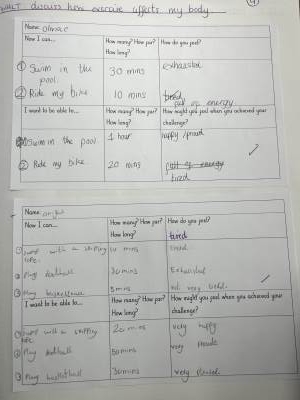 WALT discuss how exercise affects my body
Name
Now I can... How many? How far? How long? How do you feel?
① Swim in the pool. 30 mins exhausted
② Ride my bike 10 mins tired full of energy
I want to be able to... How many? How far? How long? How might you feel when you achieved your challenge?
① Swim in the pool 1 hour happy/proud
② Ride my bike. 20 mins full of energy tired
Name
Now I can... How many? How far? How long? How do you feel?
tired
① Jump with a skipping rope. 10 mins tired
② Play football 30 mins Exhausted
③ Play basketball 5 mins not very tired.
I want to be able to... How many? How far? How long? How might you feel when you achieved your challenge?
① Jump with a skipping rope 20 mins very happy
② Play football 50 mins very proud
③ Play basketball 30 mins very